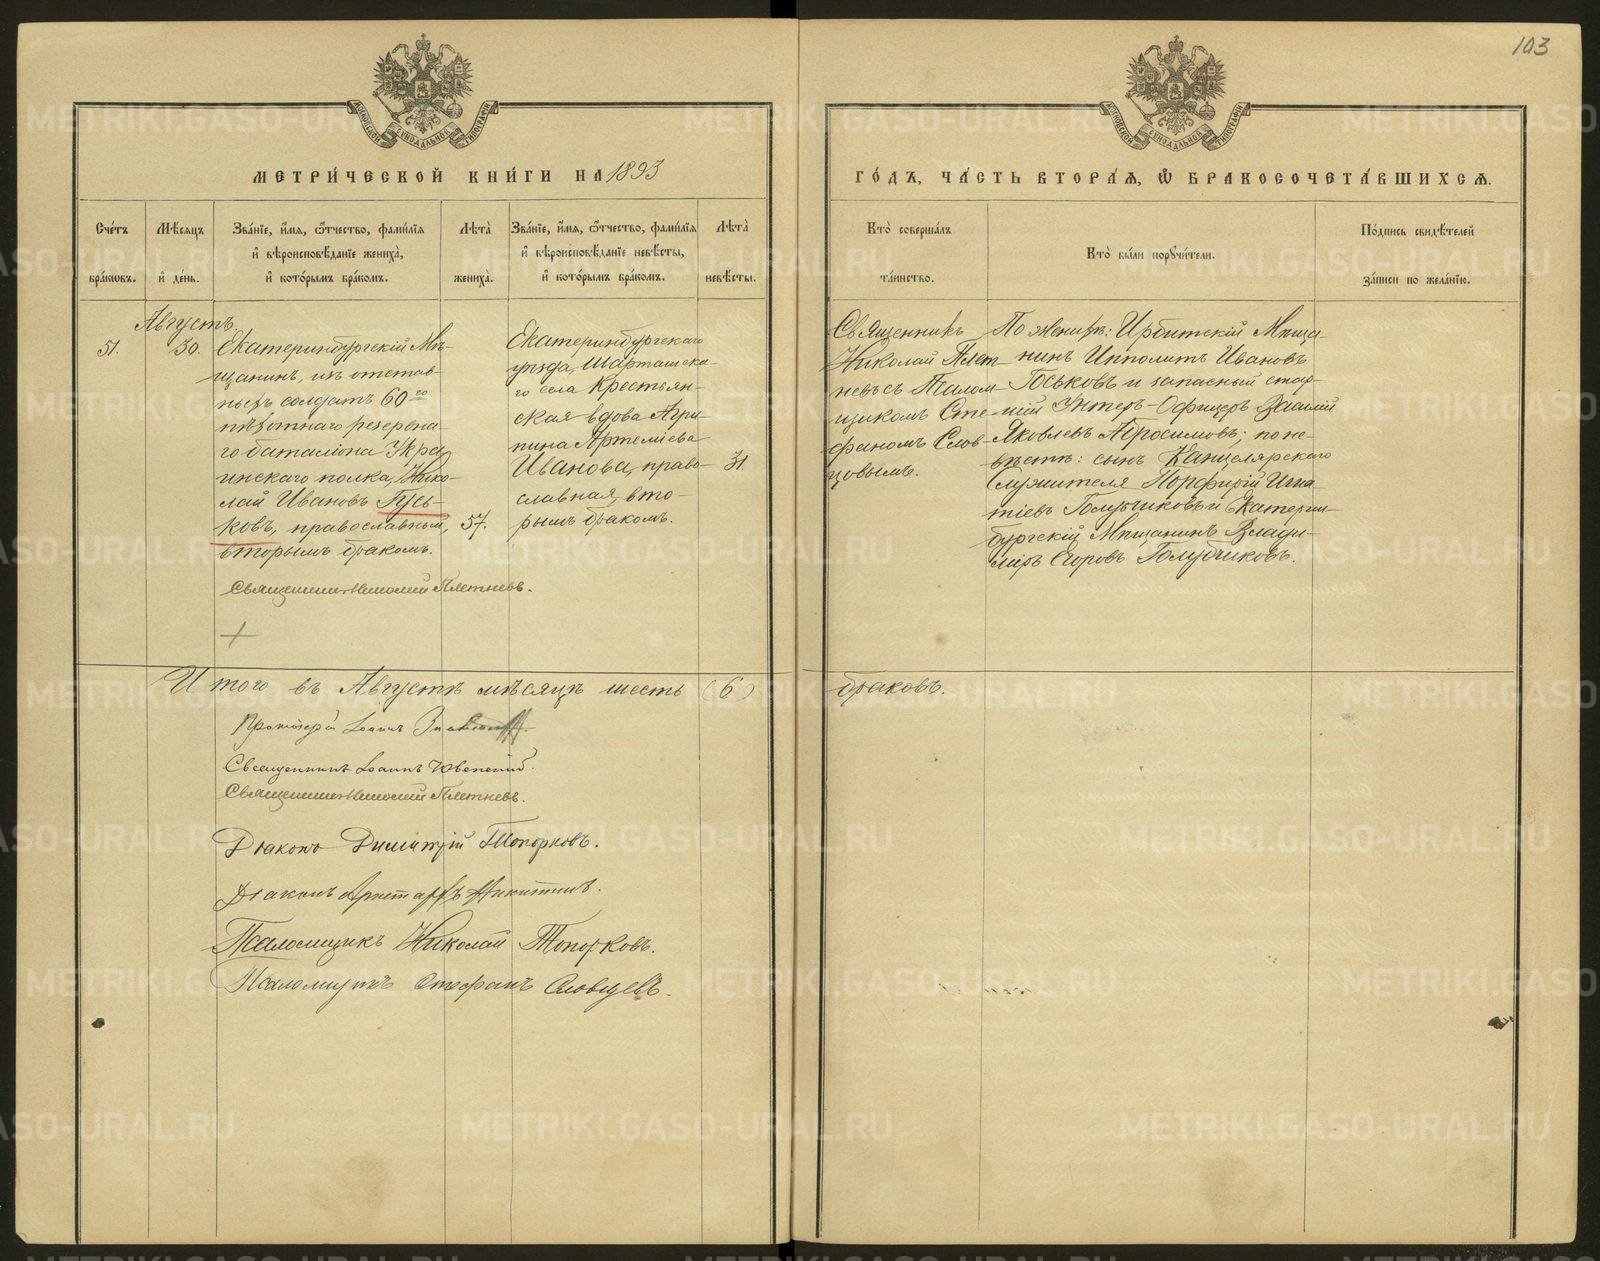 103
МЕТРИ́ЧЕСКОЙ КНИ́ГИ НА 1893
ГО́ДЪ, ЧА́СТЬ ВТОРА́Ѧ, Ѿ БРАКОСОЧЕТА́ВШИХСѦ.
Сче́тъ бра́ковъ.
Мѣ́сяцъ и де́нь.
Зва́нїе, и́мя, ѻ́тчество, фами́лїя
и вѣроисповѣ́данїе жениха̀,
и кото́рымъ бра́комъ.
Лѣта̀ жениха̀.
Зва́нїе, и́мя, ѻ́тчество, фами́лїя
и вѣроисповѣ́данїе невѣ́сты,
и кото́рымъ бра́комъ.
Лѣта̀ невѣ́сты.
Кто̀ соверша́лъ та́инство.
Кто̀ бы́ли порꙋчи́тели.
По́дпись свидѣ́телей за́писи по жела́нїю.
Августъ.
51.
30.
Екатеринбургскій Мѣ-
щанинъ, изъ отстав-
ныхъ солдатъ 60го
пѣхотнаго резервна-
го баталіона Укра-
инскаго полка, Нико-
лай Ивановъ Гусь-
ковъ, православный,
вторымъ бракомъ.
57.
Екатеринбургскаго
уѣзда, Шарташска-
го села Крестьян-
ская вдова Агри-
пина Артемьева
Иванова, право-
славная, вто-
рымъ бракомъ.
31.
Священникъ
Николай Плет-
невъ съ Псалом-
щикомъ Сте-
фаномъ Слов-
цовымъ.
По женихѣ: Ирбитскій Мѣща-
нинъ Ипполитъ Ивановъ
Госьковъ и запасный стар-
шій Унтеръ-Офицеръ Василій
Яковлевъ Абросимовъ; по не-
вѣстѣ: сынъ Канцелярскаго
Служителя Порфирій Игна-
тіевъ Голубчиковъ и Екатерин-
бургскій Мѣщанинъ Влади-
міръ Егоровъ Голубчиковъ.
Священникъ Николай Плетневъ.
Итого въ Августѣ мѣсяцѣ шесть (6) браковъ.
Протоіерей Іоаннъ
Священникъ Іоаннъ
Священникъ Николай Плетневъ.
Діаконъ Димитрій Топорковъ.
Діаконъ Аристархъ Никитинъ.
Псаломщикъ Николай Топорковъ.
Псаломщикъ Стефанъ Словцевъ.
METRIKI.GASO-URAL.RU